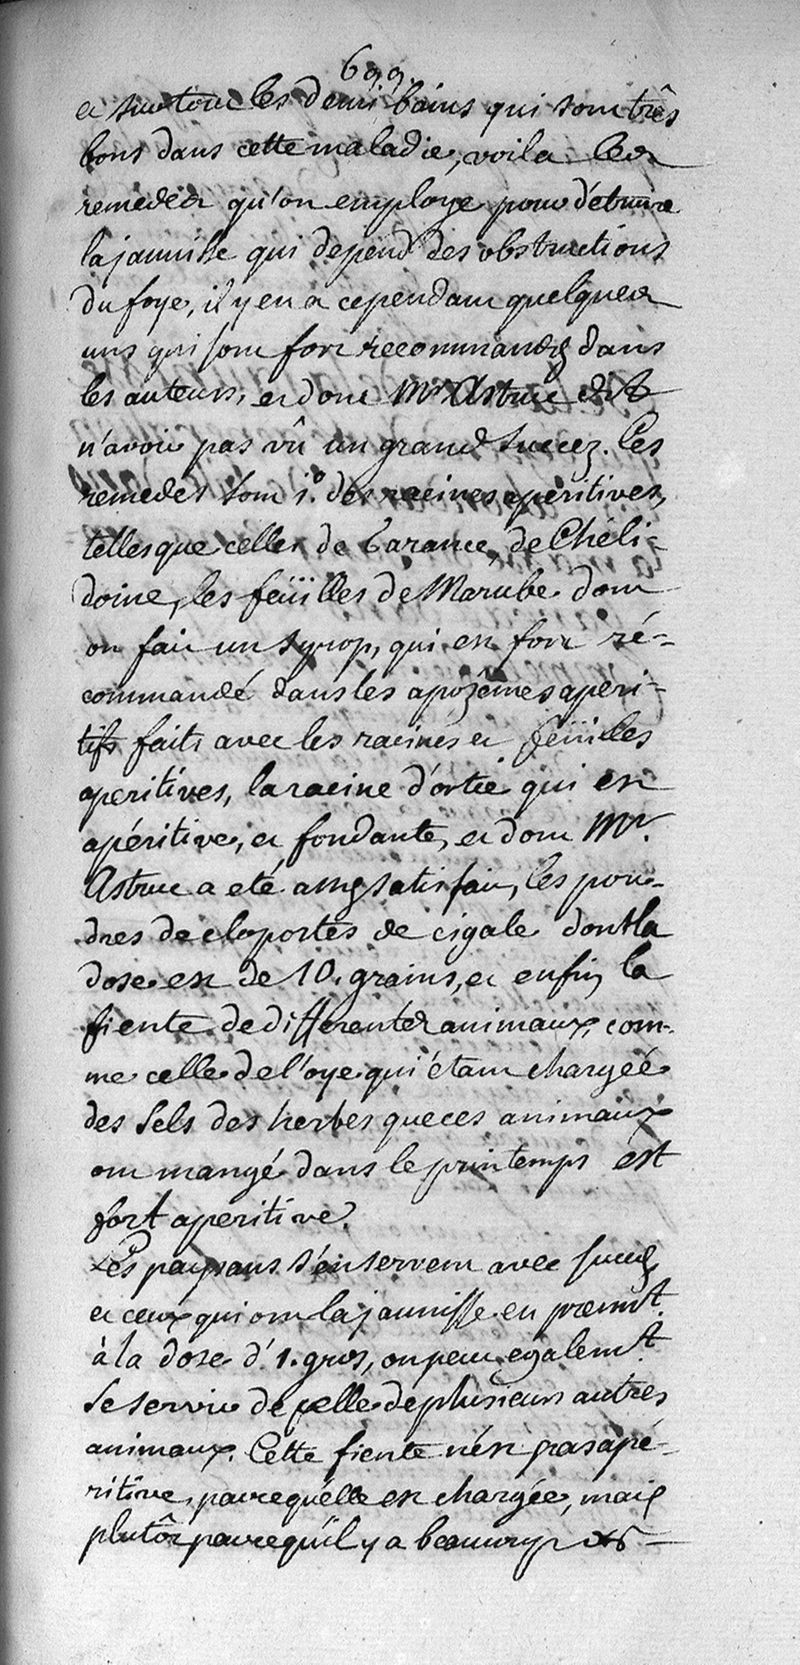 699.
et surtout les demi bains qui sont très
bons dans cette maladie, voila les
remedes qu'on employe pour détruire
la jaunisse qui depend des obstructions
du foye, il y en a cependant quelques
uns qui sont fort recommandés dans
les auteurs, et dont Mr. Astruc dit
n'avoir pas vû un grand succez. Ces
remedes sont 1.º des racines apéritives,
telles que celles de Garance, de Chéli=
doine, les feüilles de Marube dont
on fait un syrop, qui est fort ré=
commandé dans les apozémes aperi=
tifs faits avec les racines et feüilles
aperitives, la racine d'ortie qui est
apéritive, et fondante, et dont Mr.
Astruc a eté assez satisfait, les pou-
dres de cloportes de cigale dont la
dose est de 10. grains, et enfin la
fiente de differentes animaux, com-
me celle de l'oye qui étant chargée
des sels des herbes que ces animaux
ont mangé dans le printemps est
fort aperitive.
Les paysans s'en servent avec succés
et ceux qui ont la jaunisse en prennt.
à la dose d'1. gros, on peut egalemt.
se servir de celle de plusieurs autres
animaux. Cette fiente n'est pas apé=
ritive, parcequ'elle est chargée, mais
plutôt parcequ'il y a beaucoup de